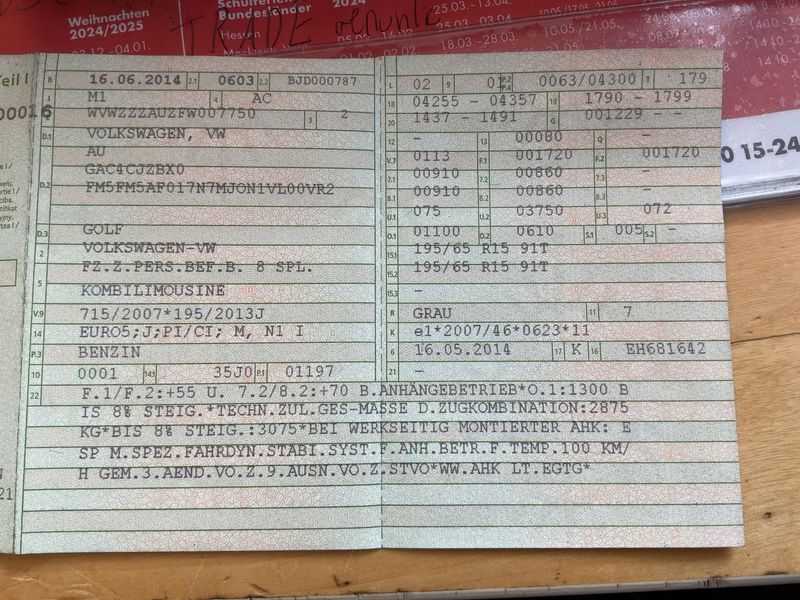 Weihnachten
2024/2025
23.12.-04.01.
Schulferien
Bundesländer 2024
Hessen
25.03.-13.04.
18.03.-28.03.
10.05./21.05.
14.10.
Teil I
B 16.06.2014 2.1 0603 2.2 BJD000787
J M1 4 AC
WVWZZZAUZFW007750 3 2
D.1 VOLKSWAGEN, VW
AU
D.2 GAC4CJZBX0
FM5FM5AF017N7MJON1VL00VR2
D.3 GOLF
2 VOLKSWAGEN-VW
5 FZ.Z.PERS.BEF.B. 8 SPL.
KOMBILIMOUSINE
V.9 715/2007*195/2013J
14 EURO5;J;PI/CI; M, N1 I
P.3 BENZIN
10 0001 14.1 35J0 P.1 01197
L 02 9 01 P.2 P.4 0063/04300 T 179
18 04255 - 04357 19 1790 - 1799
20 1437 - 1491 G 001229 - -
12 - 13 00080 Q -
V.7 0113 F.1 001720 F.2 001720
7.1 00910 7.2 00860 7.3 -
8.1 00910 8.2 00860 8.3 -
U.1 075 U.2 03750 U.3 072
O.1 01100 O.2 0610 S.1 005 S.2 -
15.1 195/65 R15 91T
15.2 195/65 R15 91T
15.3 -
R GRAU 11 7
K e1*2007/46*0623*11
6 16.05.2014 17 K 16 EH681642
21 -
22 F.1/F.2:+55 U. 7.2/8.2:+70 B.ANHÄNGEBETRIEB*O.1:1300 B
IS 8% STEIG.*TECHN.ZUL.GES-MASSE D.ZUGKOMBINATION:2875
KG*BIS 8% STEIG.:3075*BEI WERKSEITIG MONTIERTER AHK: E
SP M.SPEZ.FAHRDYN.STABI.SYST.F.ANH.BETR.F.TEMP.100 KM/
H GEM.3.AEND.VO.Z.9.AUSN.VO.Z.STVO*WW.AHK LT.EGTG*
00016
0 15-24